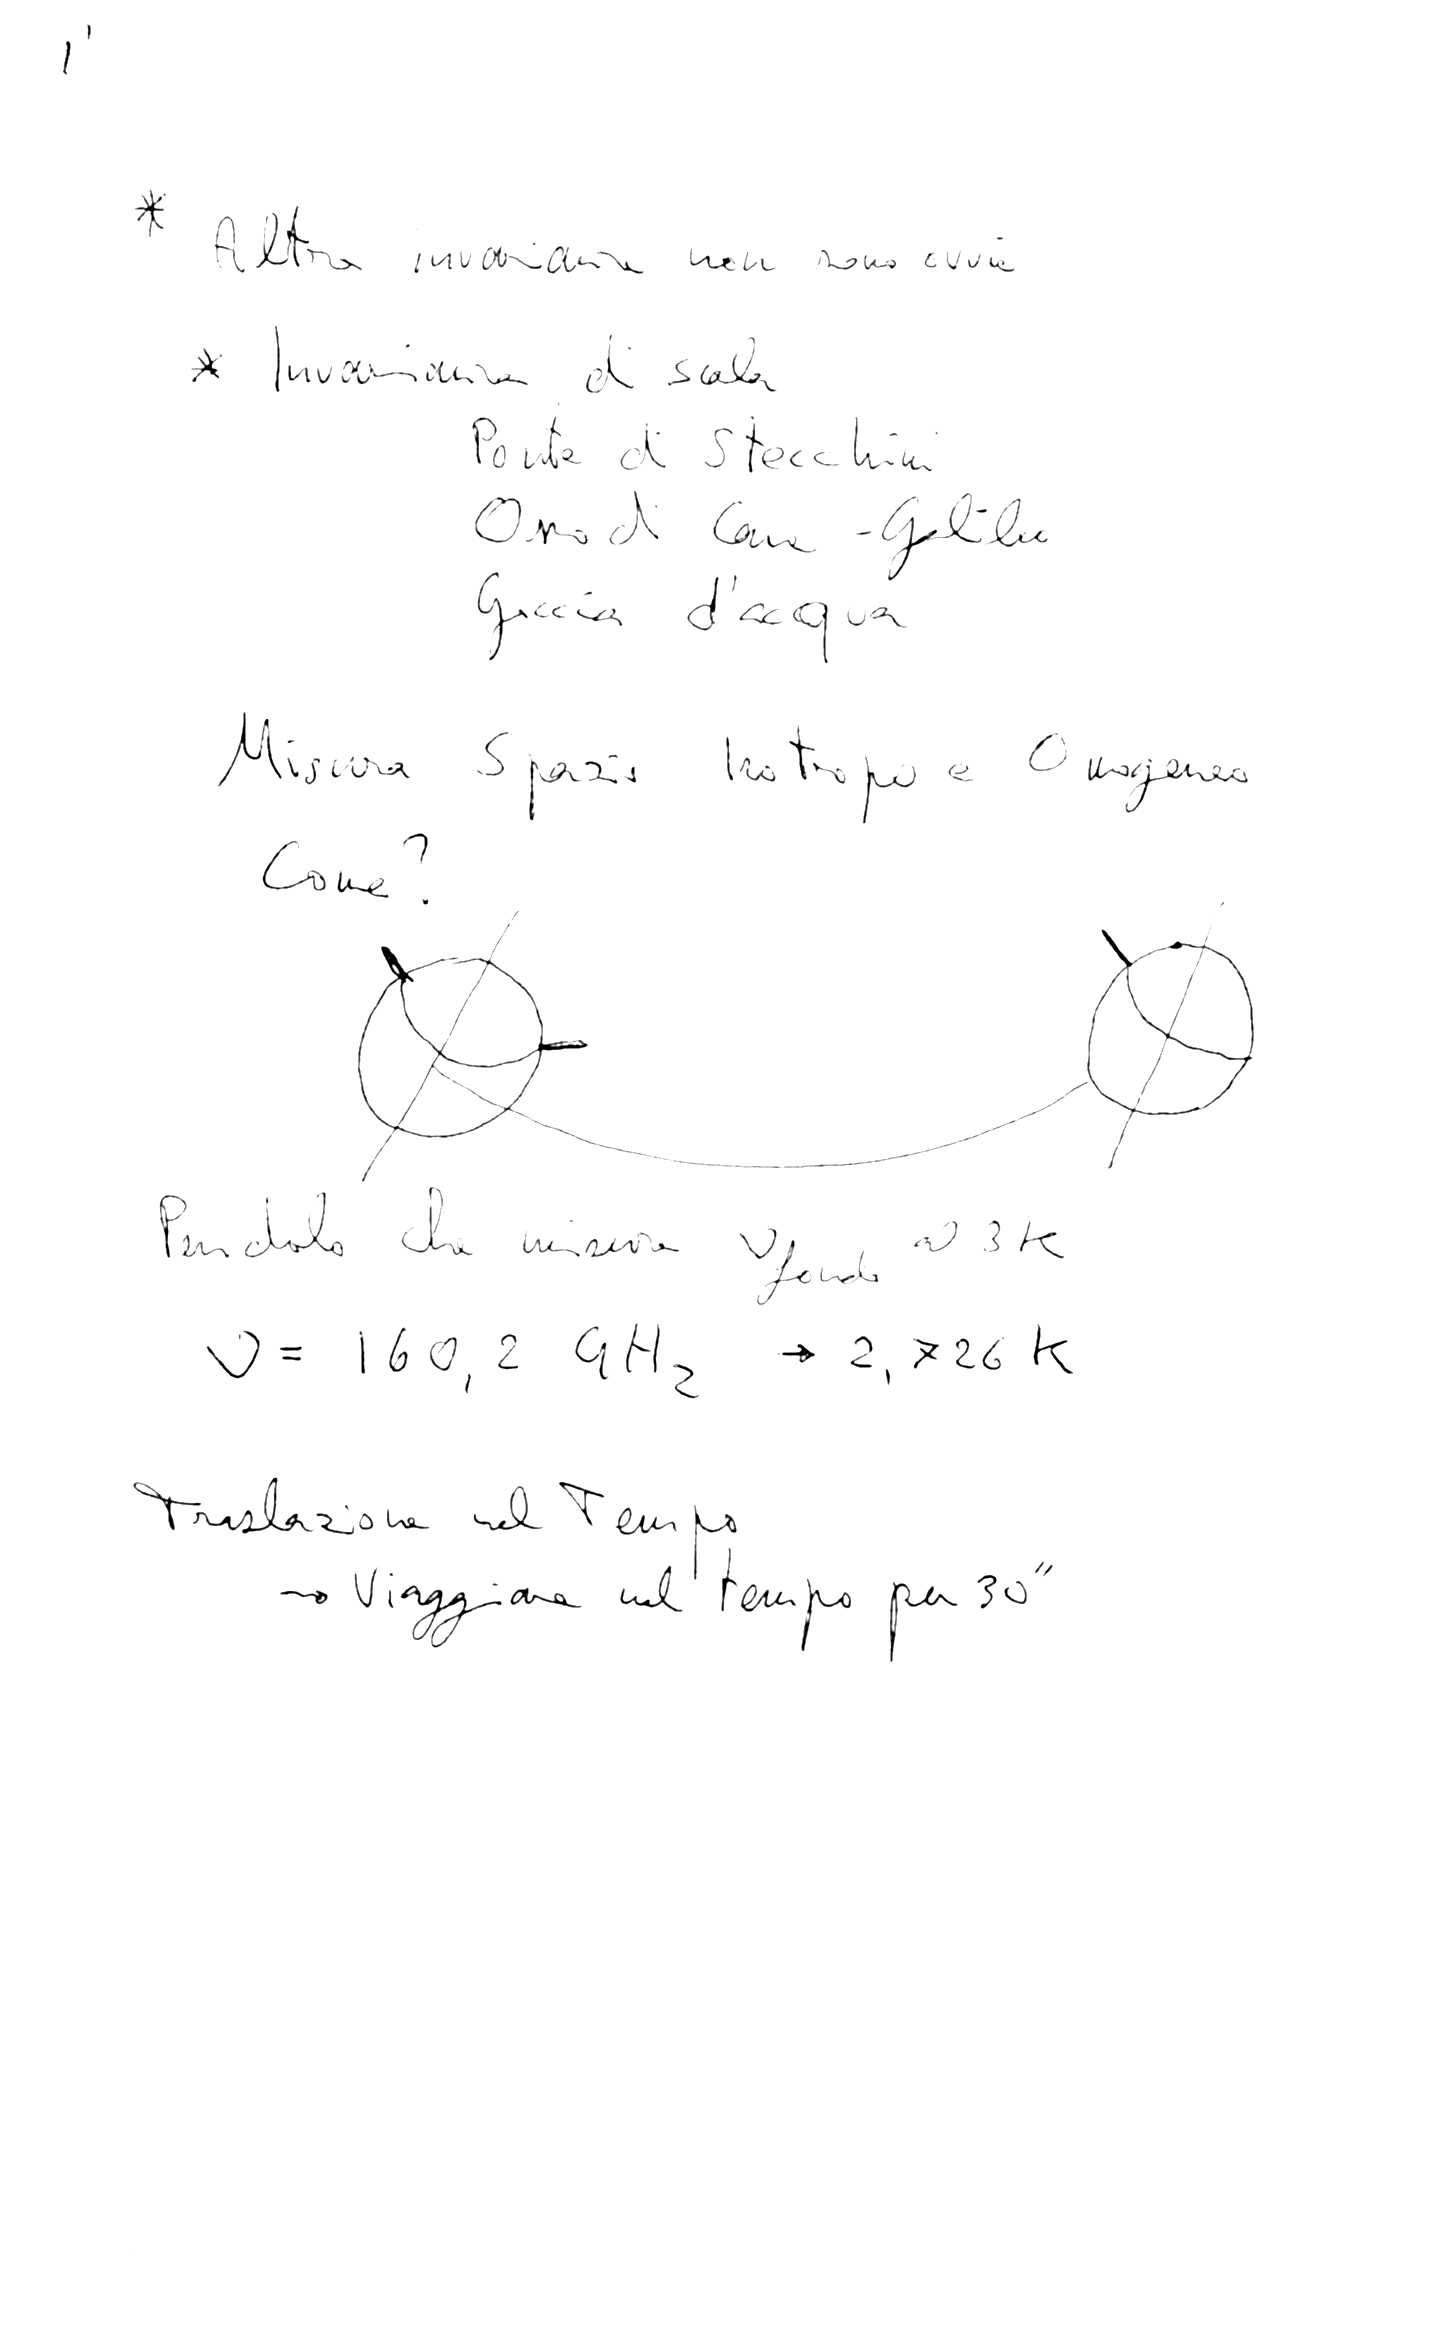 1'
* Altre invarianze non sono ovvie
* Invarianza di scala
Ponte di Stecchini
Osso di Cane - Galileo
Goccia d'acqua
Misura Spazio Isotropo e Omogeneo
Come?
Pendolo che misura ν fondo ~ 3K
ν = 160,2 GHz → 2,726 K
Traslazione nel Tempo
→ Viaggiare nel tempo per 30"